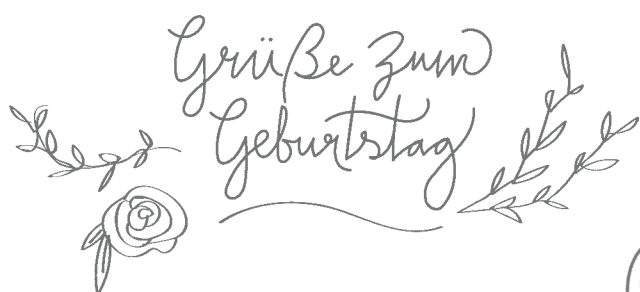 Grüße zum
Geburtstag